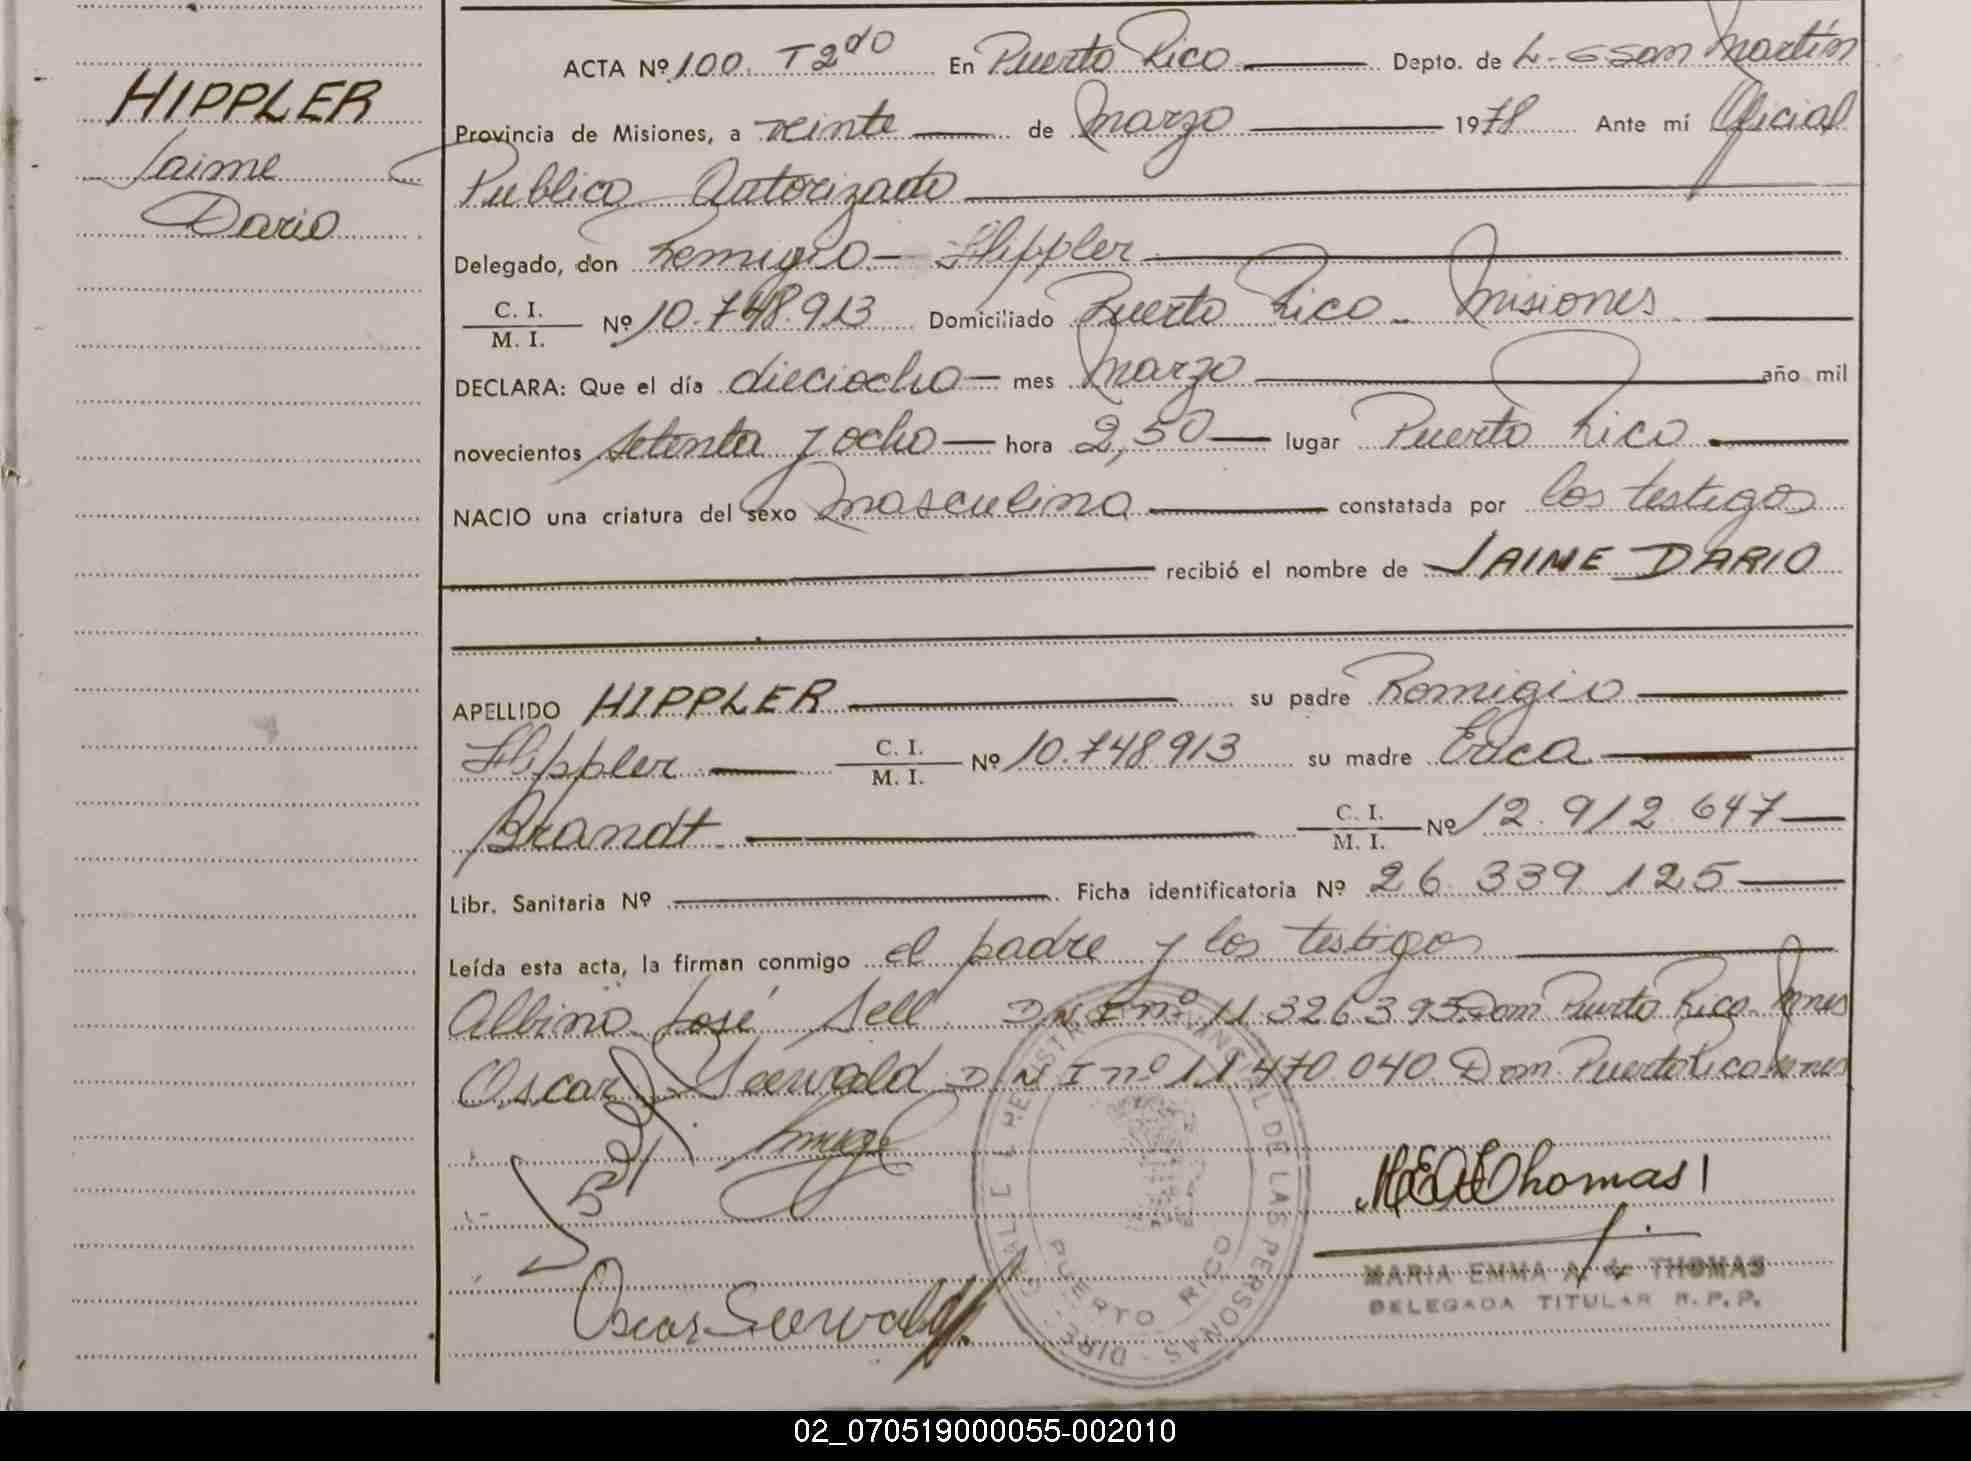 HIPPLER
Jaime
Dario
ACTA Nº 100. T 2do En Puerto Rico Depto. de L. G San Martín
Provincia de Misiones, a veinte de Marzo 1978 Ante mí Oficial
Publico Autorizado
Delegado, don Remigio Hippler
C. I.
M. I. Nº 10.748.913 Domiciliado Puerto Rico - Misiones
DECLARA: Que el día dieciocho mes Marzo año mil
novecientos setenta y ocho hora 2,50 lugar Puerto Rico
NACIO una criatura del sexo masculino constatada por los testigos
recibió el nombre de JAIME DARIO
APELLIDO HIPPLER su padre Remigio
Hippler C. I.
M. I. Nº 10.748913 su madre Erica
Brandt C. I.
M. I. Nº 12.912.647
Libr. Sanitaria Nº Ficha identificatoria Nº 26 339 125
Leída esta acta, la firman conmigo el padre y los testigos
Albino José Sell DNI nº 11.326.395 Dom Puerto Rico. Mnes
Oscar Seewald DNI nº 11.470.040 Dom. Puerto Rico Mnes
M E A de Thomas
Oscar Seewald
MARIA EMMA A. de THOMAS
DELEGADA TITULAR R.P.P.
PUERTO RICO
02_070519000055-002010